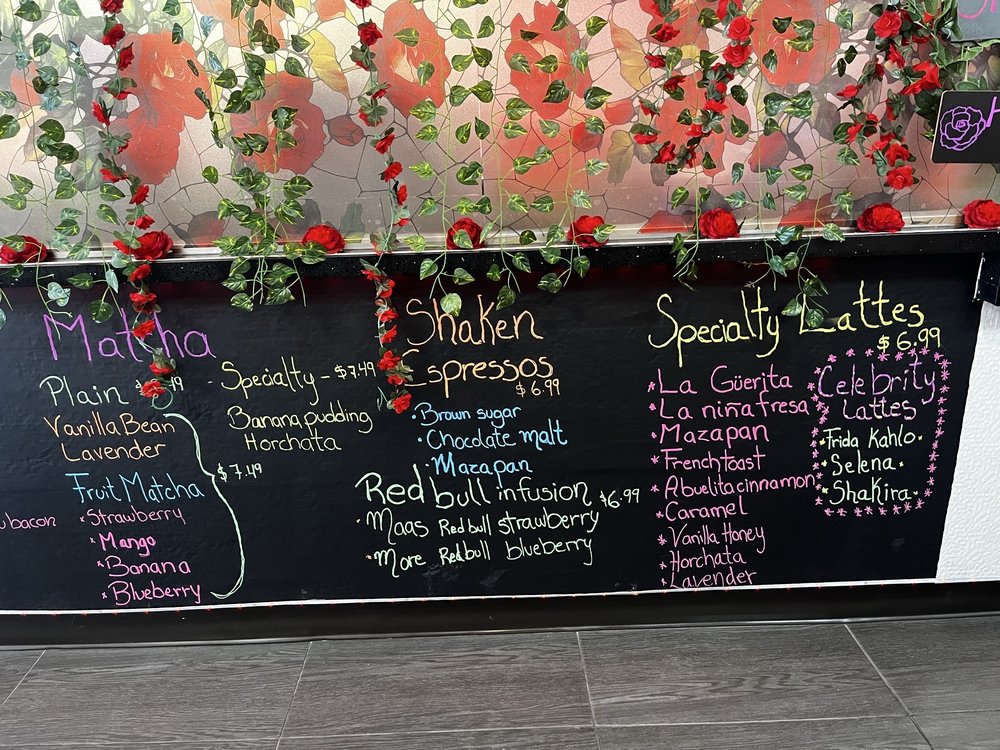 Matcha
Plain
Vanilla Bean
Lavender
Fruit Matcha
*Strawberry
*Mango
*Banana
*Blueberry
$7.49
bacon
- Specialty - $7.49
Banana pudding
Horchata
Shaken
Espressos
$6.99
• Brown sugar
• Chocolate malt
• Mazapan
Red bull infusion $6.99
• Maas Red bull strawberry
• More Red bull blueberry
Specialty Lattes
$6.99
*La Güerita
*La niña fresa
*Mazapan
*French toast
*Abuelita cinnamon
*Caramel
*Vanilla Honey
*Horchata
*Lavender
Celebrity
Lattes
Frida Kahlo
Selena
Shakira